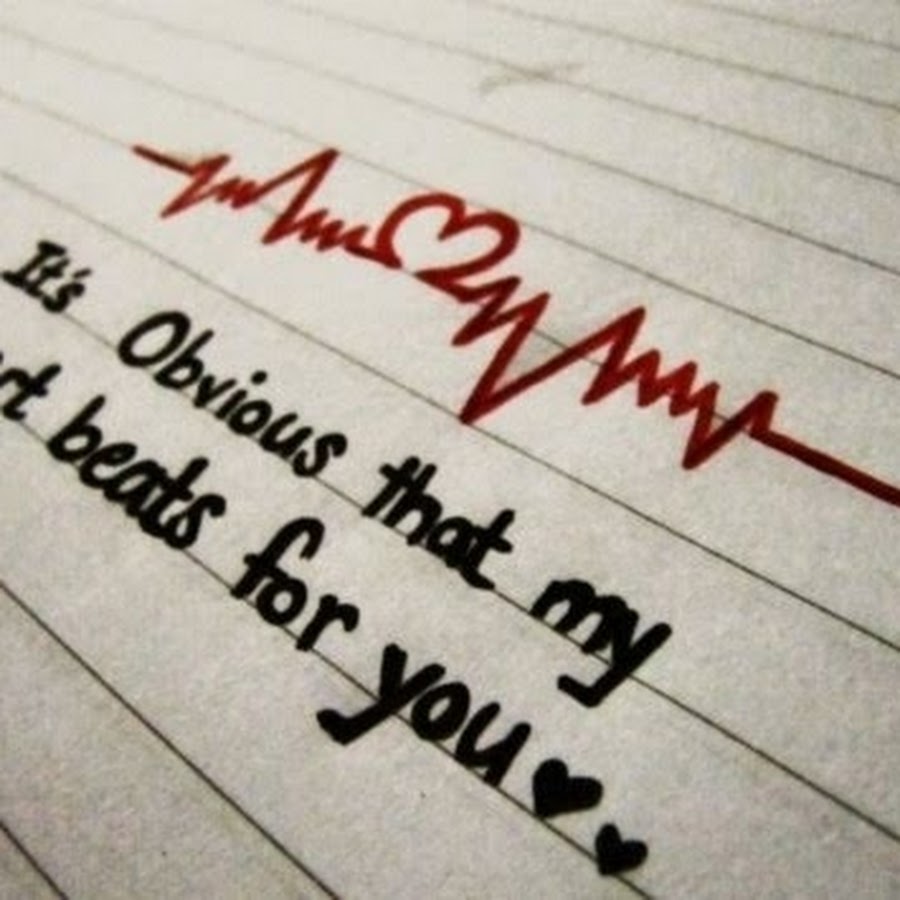 It's Obvious that my
rt beats for you